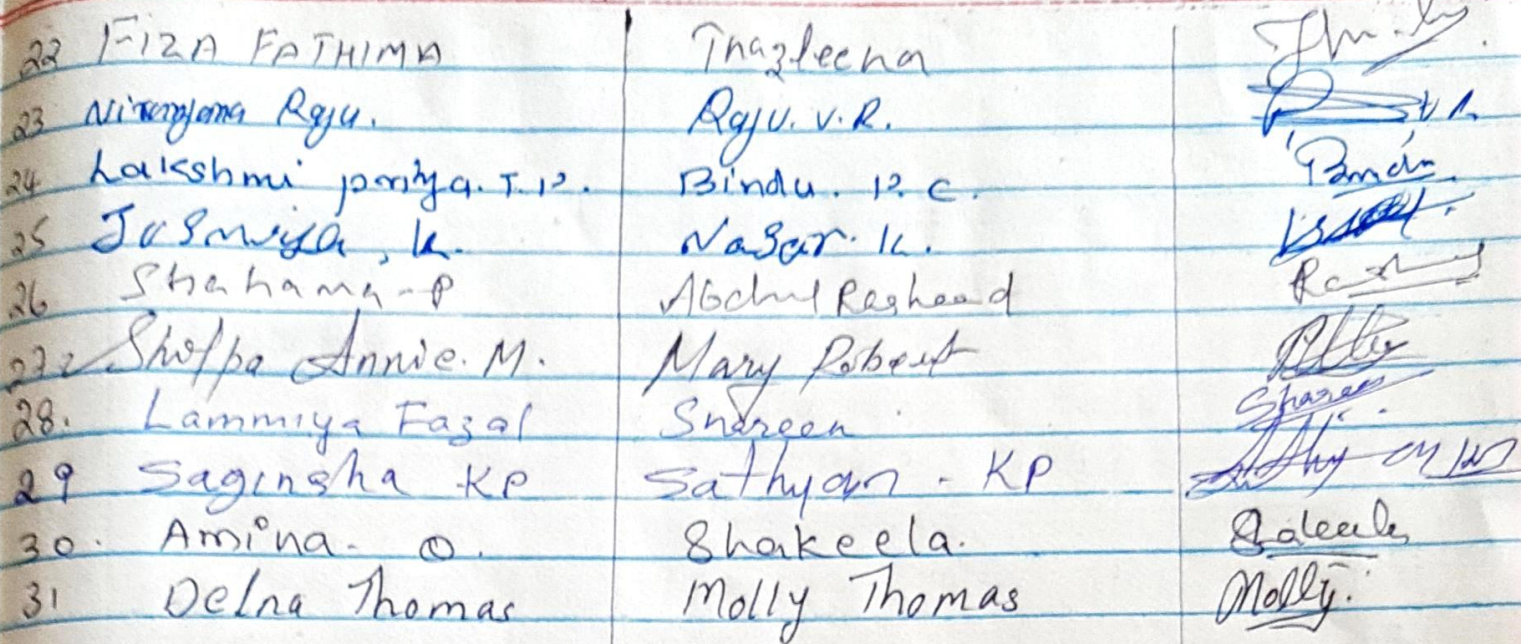 22 FIZA FATHIMA Thazleena
23 Niranjana Raju. Raju. V. R.
24 Lakshmi priya. T. P. Bindu. P. C.
25 Jusmiya, K. Nasar. K.
26 Shahama - P Abdul Rasheed
27 Shilpa Annie. M. Mary Robert
28. Lammiya Fazal Shereen Shareen
29 Saginsha KP Sathyan - KP
30. Amina. O. Shakeela.
31 Delna Thomas Molly Thomas Molly.